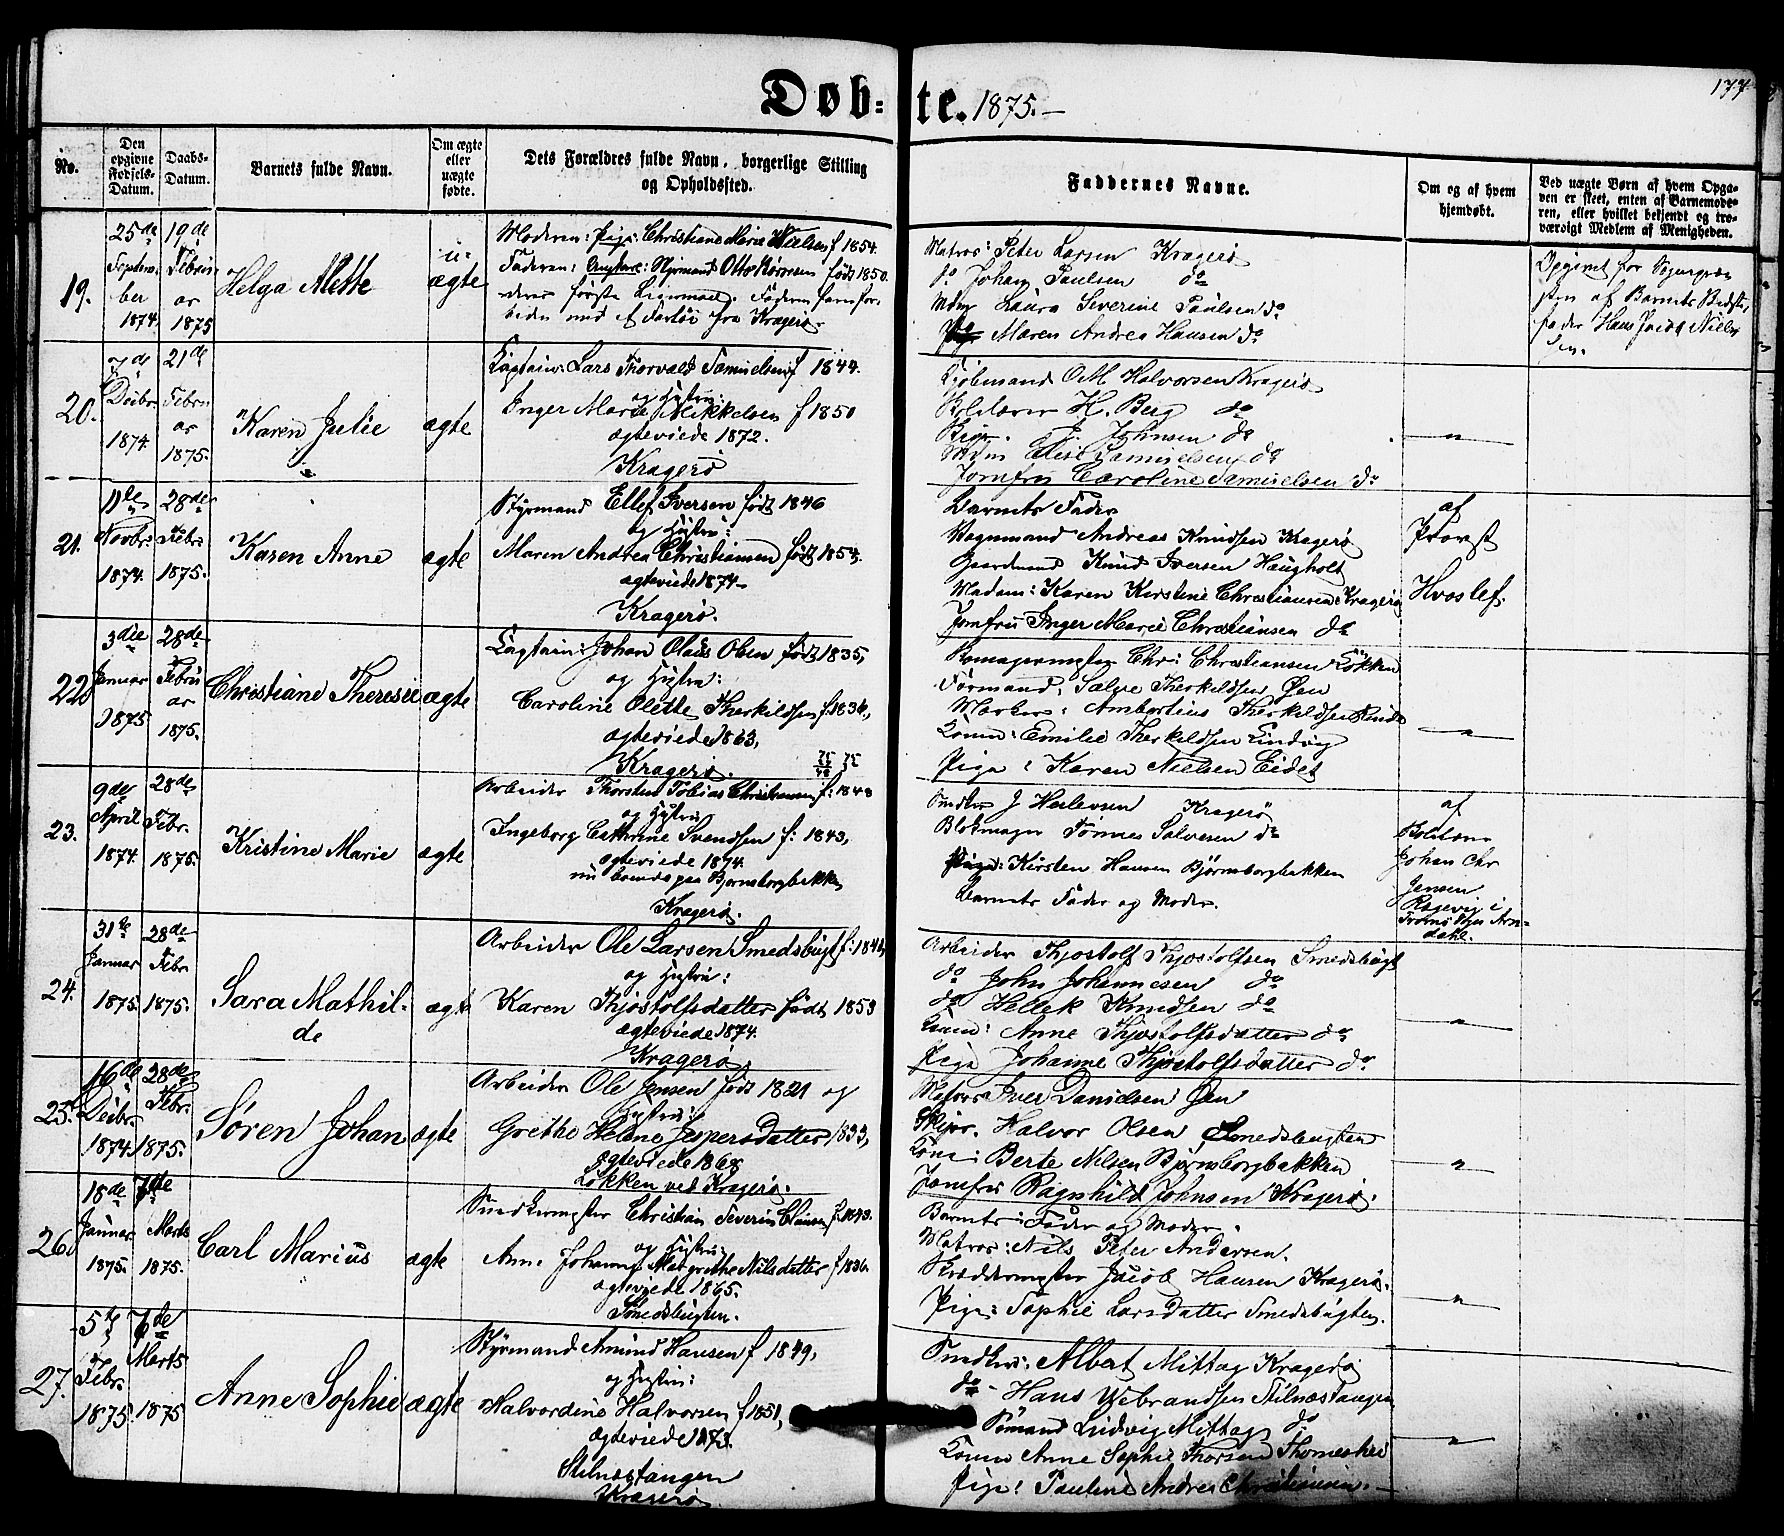 Døb-te. 1875.-
177
No.
Den opgivne Fødsels-Datum.
Daabs-Datum.
Barnets fulde Navn.
Om ægte eller uægte fødte.
Dets Forældres fulde Navn, borgerlige Stilling og Opholdssted.
Faddernes Navne.
Om og af hvem hjemdøbt.
Ved uægte Børn af hvem Opgaven er skeet, enten af Barnemoderen, eller hvilket bekjendt og troværdigt Medlem af Menigheden.
19.
25de Septem-
ber
1874.
19de Febru-
ar
1875
Helga Mette
u-
ægte
Moderen: Pige: Christiane Marie Nielsen f 1854.
Faderen: Ungkarl: Styrmand Otto født 1850.
deres første Leiermaal. Faderen
med et Fartøi fra Kragerø.
Matros: Peter Larsen Kragerø
do Johan Paulsen do
Mdm Laura Severine Paulsen do
Pige Maren Andrea Hansen do
Opgivet for Sognepræ-
sten af Barnets Bedste-
fader Hans Jacob Niel-
sen.
20.
7de
Decbr.
1874.
21de
Febru-
ar
1875.
Karen Julie
ægte
Captain: Lars Thorvald Samuelsen f 1844.
og Hustru:
Inger Marie Mikkelsen f 1850
ægteviede 1872.
Kragerø
Kjøbmand O M Halvorsen Kragerø
H. Berg do
J. Johnsen do
Mdm Elise Samuelsen do
Jomfru Caroline Samuelsen do
"
21.
11te
Novbr.
1874.
28de
Febr.
1875.
Karen Anne
ægte
Styrmand Ellef Iversen født 1846
og Hustru:
Maren Andrea Christiansen født 1854.
ægteviede 1874-
Kragerø.
Barnets Fader
Vognmand Andreas Knudsen Kragerø
Gaardmand Knud Iversen Haugholt
Madam: Karen Kirstine Christiansen Kragerø
Jomfru Inger Marie Christiansen do
af
Provst
Hvoslef.
22.
3die
Januar
1875
28de
Febru-
ar
1875.
Christiane Theresie
ægte
Captain: Johan Olaus Olsen født 1835,
og Hustru:
Caroline Olette Therkildsen f. 1836,
ægteviede 1863,
Kragerø.
Chr: Christiansen Løkken
Formand: Salve Therkildsen Øen
Ambortius Therkildsen
Kone: Emilie Therkildsen Lindvig
Pige: Karen Nielsen Eidet
"
23.
9de
April
1874.
28de
Febr.
1875.
Kristine Marie
ægte
Arbeider Thorsten Tobias Christiansen f: 1848
og Hustru
Ingeborg Cathrine Svendsen f: 1843,
ægteviede 1874.
nu boende paa Bjørnsborgbakken
Kragerø.
Snedker J Herlevsen Kragerø
Blokmager Tønnes Salvesen do
Pige: Kirsten Hansen Bjørnsborgbakken
Barnets Fader og Moder.
af
Johan Chr
Jensen
Ragevig i
Tromø Arn-
dahl.
24.
31te
Januar
1875
28de
Febr
1875.
Sara Mathil-
de
ægte
Arbeider Ole Larsen Smedsbugt
og Hustru:
Karen Thjostolfsdatter født 1853
ægteviede 1874.
Kragerø
Arbeider Thjostolf Thjostolfsen Smedsbugt
do John Johannesen do
do Hellek Knudsen do
Kone: Anne Thjostolfsdatter do
Pige Johanne Thjostolfsdatter do
"
25.
16de
Decbr.
1874
28de
Febr.
1875.
Søren Johan
ægte
Arbeider Ole Jensen født 1821 og
Hustru:
Grethe Helene Jespersdatter 1833,
ægteviede 1868
Løkken ved Kragerø.
Matros Iver Danielsen Øen
Skipr. Halvor Olsen Smedsbugten
Kone: Berte Nilsen Bjørnsborgbakken
Jomfru Ragnhild Johnsen Kragerø.
"
26.
18de
Januar
1875.
7de
Marts
1875.
Carl Marius
ægte
Snedkermester Christian Severin Clausen f. 1843.
og Hustru:
Anne Johanne Margrethe Nilsdatter f 1836.
ægteviede 1865.
Smedsbugten.
Barnets: Fader og Moder.
Matros: Nils Peter Andersen.
Skreddermester Jacob Hansen Kragerø.
Pige: Sophie Larsdatter Smedsbugten.
"
27.
5te
Febr.
1875.
7de
Marts
1875
Anne Sophie
ægte
Styrmand Amund Hansen f 1849,
og Hustru:
Halvordine Halvorsen f 1851,
ægteviede 1873.
Stilnæstangen
Kragerø
Snedker: Albert Mittag Kragerø
do - Hans Webrandsen Stilnæstangen
Sømand Ludvig Mittag do
Kone Anne Sophie Thorsen
Pige: Pauline Andrea Christiansen.
"